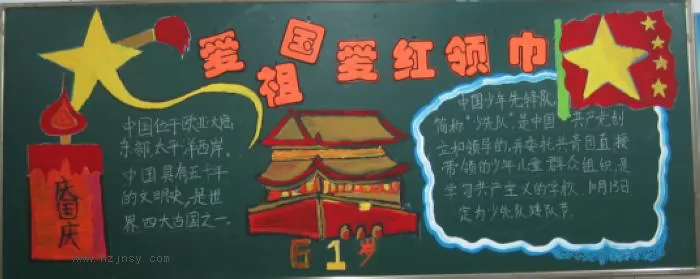 爱祖国 爱红领巾
中国位于欧亚大陆
东部,太平洋西岸。
中国具有五千年
的文明史,是世
界四大古国之一。
中国少年先锋队,
简称“少先队”,是中国共产党创
立和领导的,并委托共青团直接
带领的少年儿童群众组织,是
学习共产主义的学校,10月13日
定为少先队建队节。
庆国庆
61岁